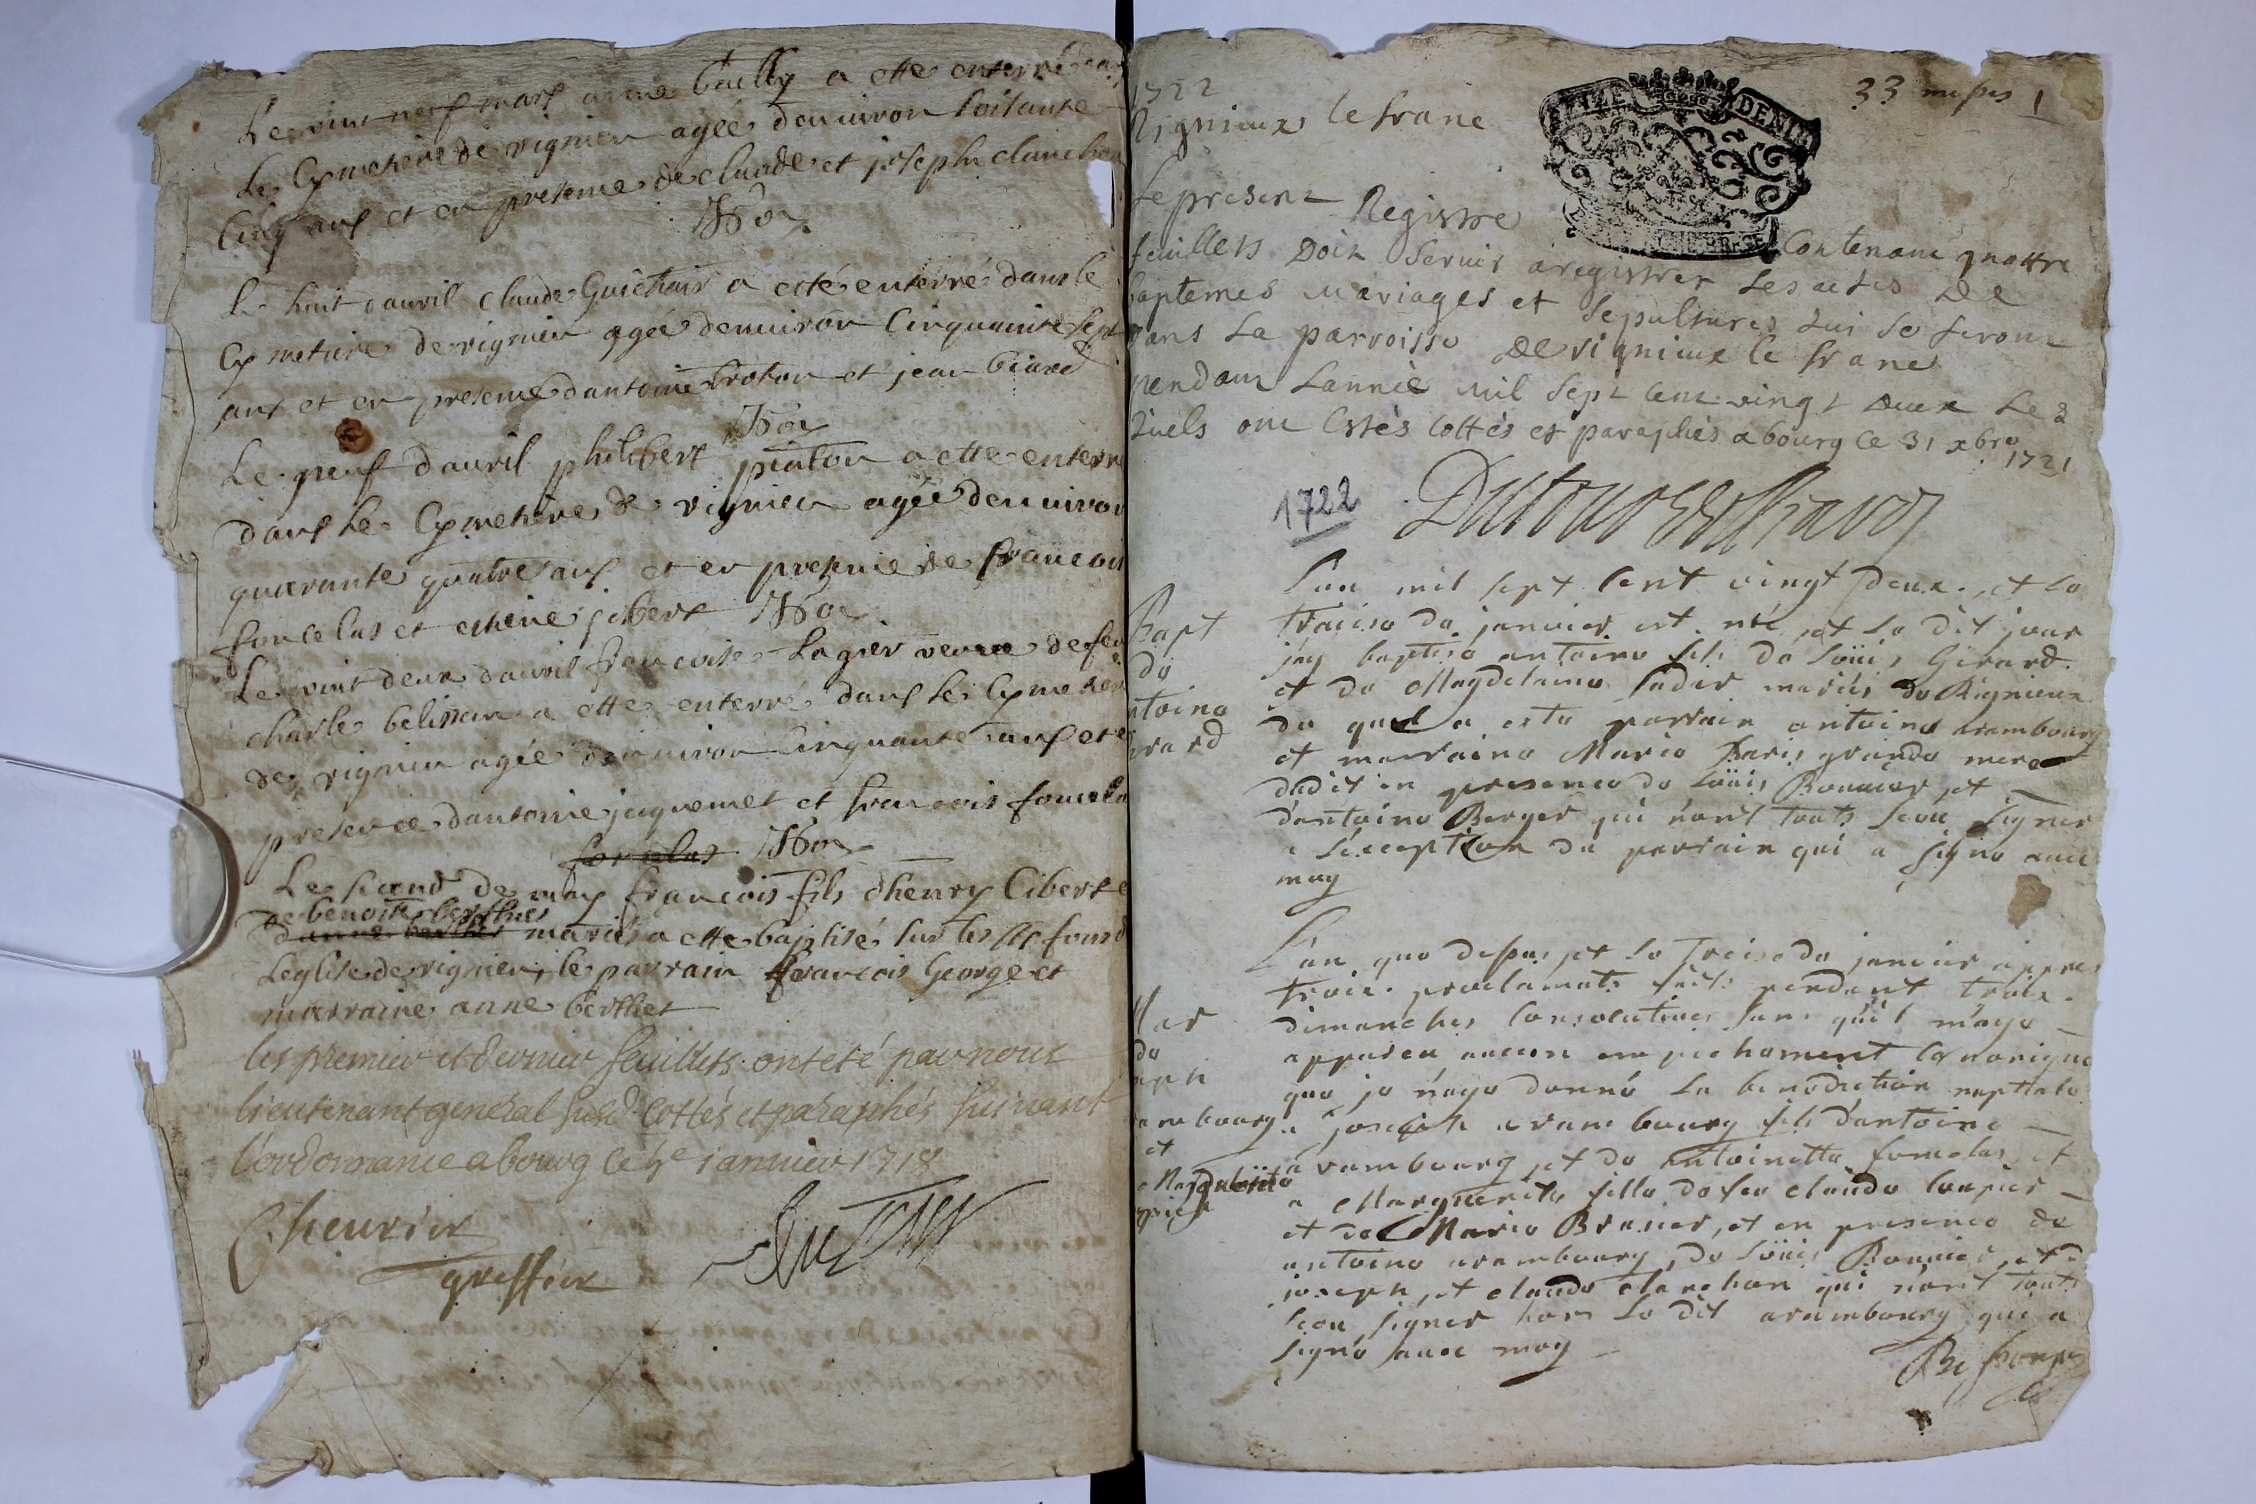 Le vint neuf mars anne bailly a ette enterré dans
Le Cymetiere de rignieu agée denuiron soixante
Cinq ans et en presence de claude et joseph clanchon
Le huit dauril claude Guichair a esté enterré dans le
Cymetiere de rignieu agée denuiron Cinquante sept
ans et en presence dantoine broton et jean biard
Le neuf dauril philibert piaton a ette enterré
dans Le Cymetiere de rignieu agée denuiron
quarante quatre ans et en presence de francois
foncelas et etiene jibert
Le vint deux dauril francoise Lagier veuue de feu
charle belisson a ette enterré dans le Cymetiere
de rignieu agée denuiron Cinquante ans et en
presence dantoine jaquemet et francois foncela
foncelas
Le second de may francois fils dhenry Cibert et
de benoite berthet
danne berthet mariés a ette baptisé sur les fonds
Leglise de rignieu, le parrain francois George et
marraine anne berthet
les premier et dernier feuillets ont eté par nous
lieutenant general susd. cottés et paraphés suiuant
l'ordonnance a bourg le 7e januier 1718
Cheurier
greffier
1722
33
1
Rignieux le franc
TREIZE DENIERS
Le present Registre Contenant quattre
feuillets Doit Seruir a registrer Les actes De
baptemes mariages et sepultures qui se feront
dans La parroisse De rignieux le franc
pendant Lannée mil sept cent vingt deux Les
quels ont Estés cottés et paraphés a bourg ce 31 xbre 1721
1722
L'an mil sept cent vingt deux, et le
Bapt
traize de janvier est né, et le dit jour
de
jay baptisé antoine fils de Loüis Girard
et de Magdelaine Lader mariés de Rignieux
antoine
du quel a esté parrain antoine arambourg
Girard
et marraine Marie Baris grande mere
dudit en presence de Loüis Bonnier, et
d'antoine Berger qui n'ont touts sceu signer
a l'exception du parrain qui a signé auec
moy
L'an que dessus, et le Treise de janvier appres
trois proclamats faits pendant trois
Mar
dimanches consecutives sans qu'il m'aye
de
apparu aucun empechement canonique
joseph
que je n'aye donné la benediction nuptiale
arambourg
a joseph arambourg fils d'antoine
et
arambourg, et de antoinette foncelas, et
Marguerite
a Marguerite fille de feu claude loupier
et de Marie Brunier, et en presence de
antoine arambourg, de Loüis Bonnier, et de
joseph, et claude clanchon qui n'ont touts
sceu signer hors le dit arambourg qui a
signé auec moy